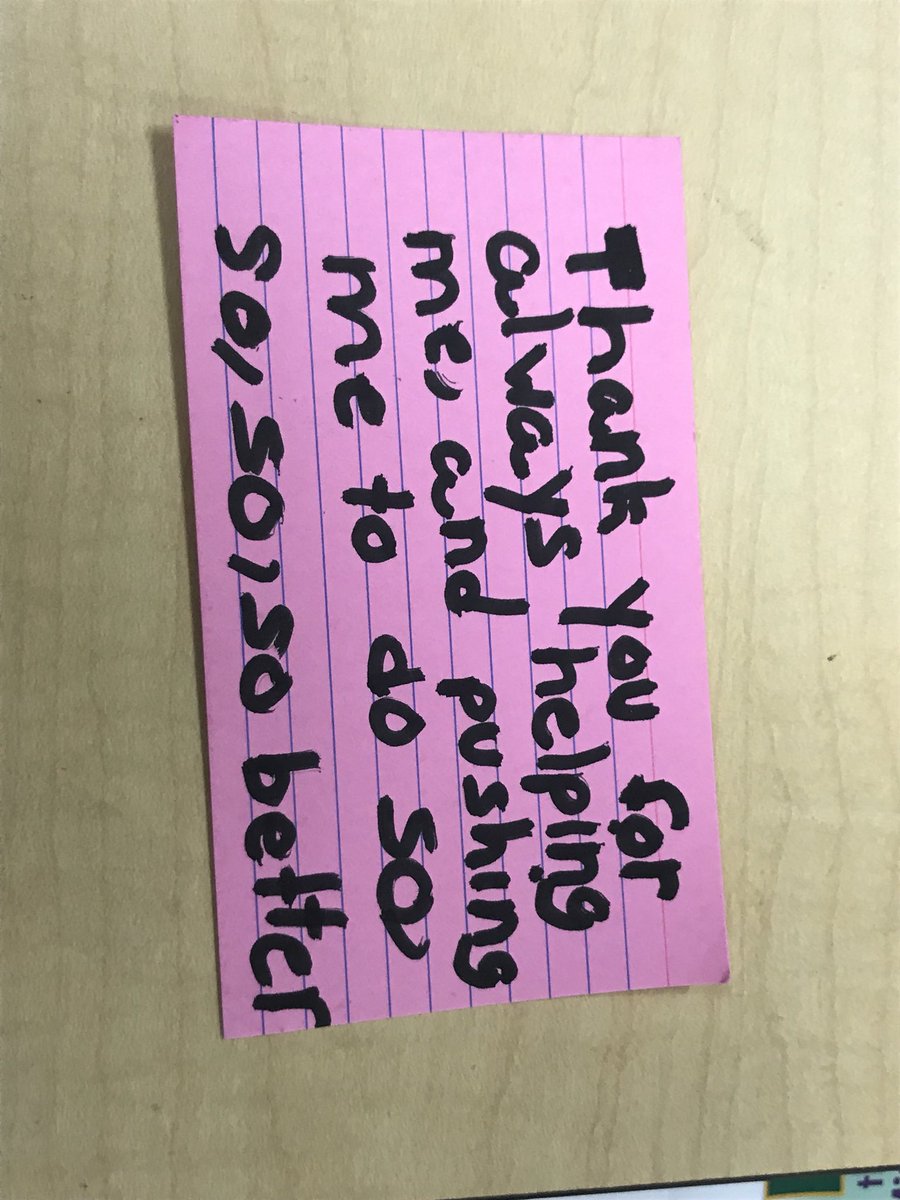 Thank you for
always helping
me, and pushing
me to do so,
so, so, so better